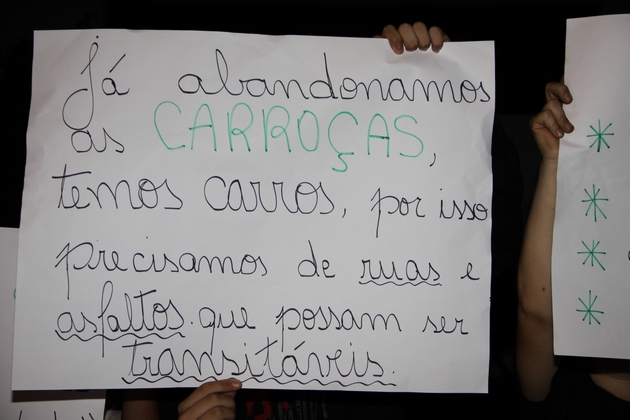 Já abandonamos
as CARROÇAS,
temos carros, por isso
precisamos de ruas e
asfaltos que possam ser
transitáveis.